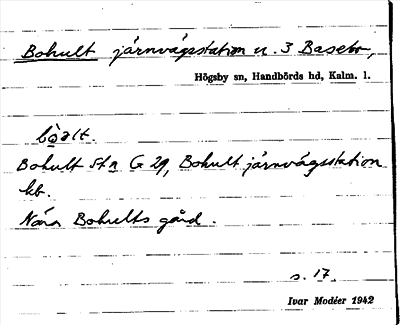 Bohult järnvägsstation u. 3 Basebo,
Högsby sn, Handbörds hd, Kalm. l.
bò̱alt.
Bohult stn G 29, Bohult järnvägsstation
kb.
Nära Bohults gård.
s. 17.
Ivar Modéer 1942